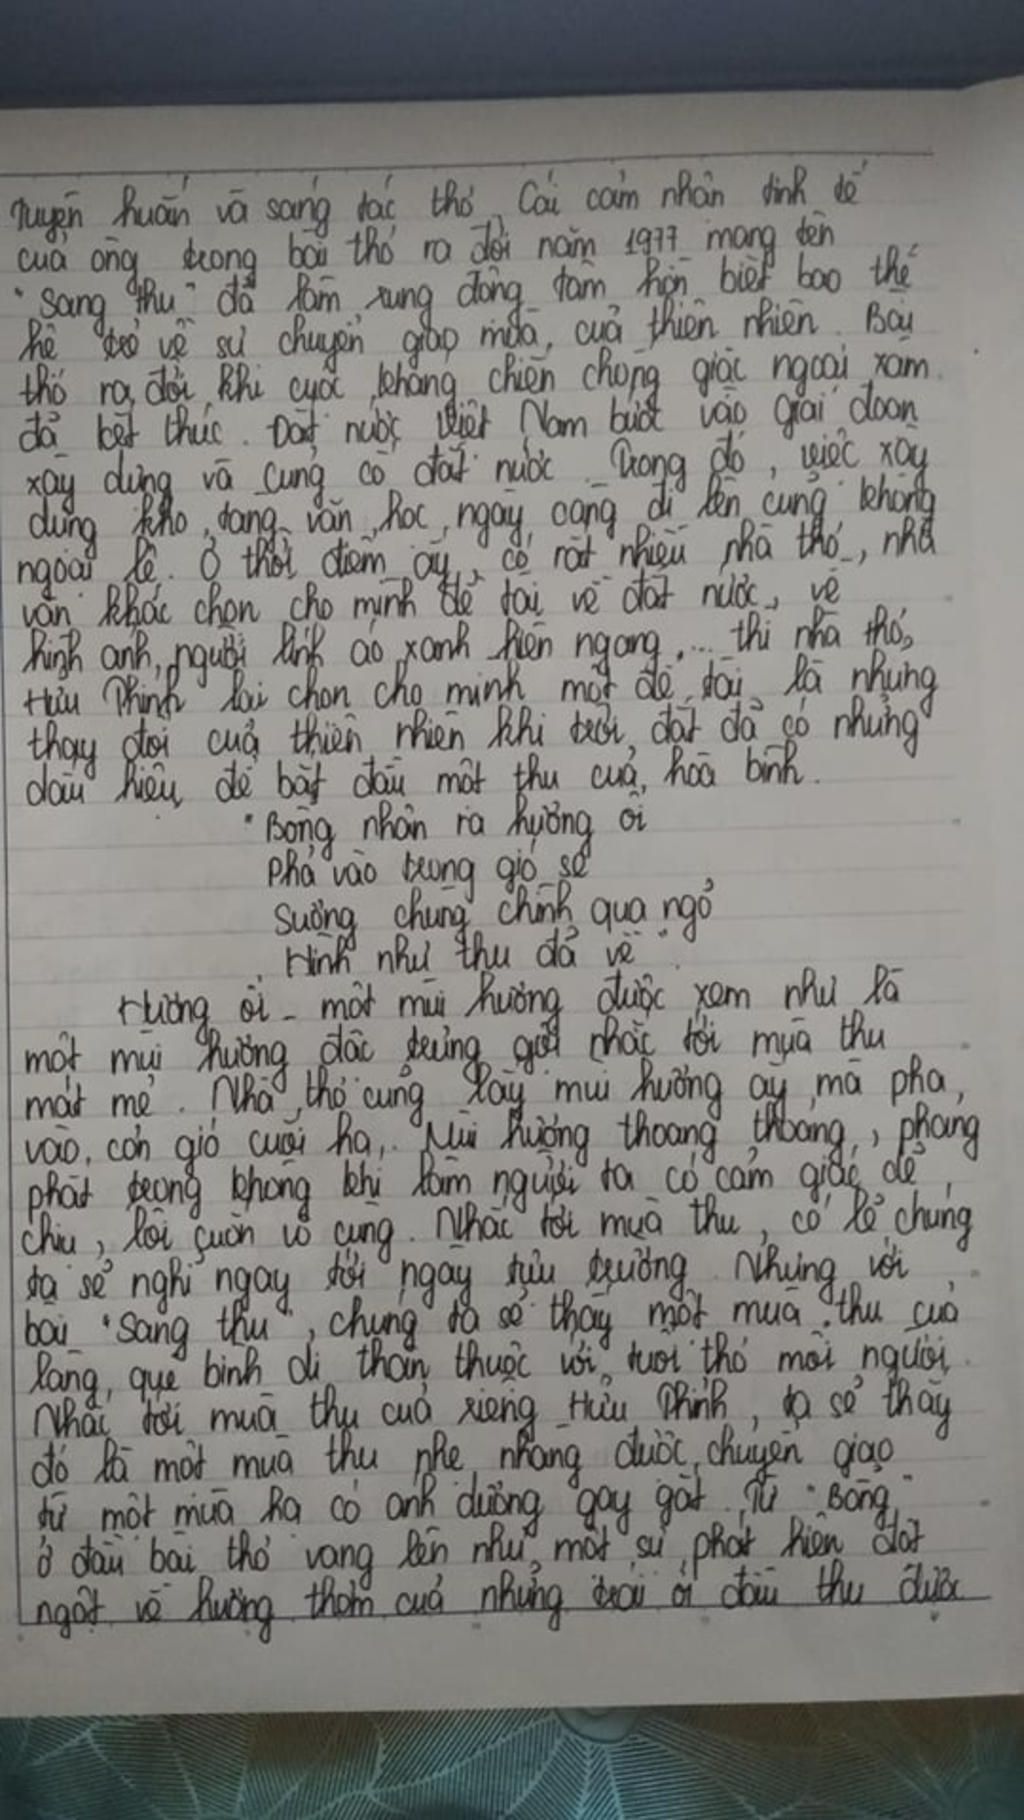 truyện huấn và sáng tác thơ. Cái cảm nhận tinh tế
của ông trong bài thơ ra đời năm 1977 mang tên
"Sang thu" đã làm rung động tâm hồn biết bao thế
hệ trẻ về sự chuyển giao mùa của thiên nhiên. Bài
thơ ra đời khi cuộc kháng chiến chống giặc ngoại xâm
đã kết thúc. Đất nước Việt Nam bước vào giai đoạn
xây dựng và cũng cố đất nước. Trong đó, việc xây
dựng kho tàng văn học ngày càng đi lên cũng không
ngoại lệ. Ở thời điểm ấy, có rất nhiều nhà thơ, nhà
văn khác chọn cho mình đề tài về đất nước, về
hình ảnh người lính áo xanh hiên ngang,... thì nhà thơ
Hữu Thỉnh lại chọn cho mình một đề tài là những
thay đổi của thiên nhiên khi trời đất đã có những
dấu hiệu để bắt đầu một thu của hòa bình.
"Bỗng nhận ra hương ổi
Phả vào trong gió se
Sương chùng chình qua ngõ
Hình như thu đã về".
Hương ổi - một mùi hương được xem như là
một mùi hương đặc trưng gợi nhắc tới mùa thu
mát mẻ. Nhà thơ cũng lấy mùi hương ấy mà pha
vào cơn gió cuối hạ. Mùi hương thoang thoảng, phảng
phất trong không khí làm người ta có cảm giác dễ
chịu, lôi cuốn vô cùng. Nhắc tới mùa thu, có lẽ chúng
ta sẽ nghĩ ngay tới ngày tựu trường. Nhưng với
bài "Sang thu", chúng ta sẽ thấy một mùa thu của
làng quê bình dị thân thuộc với tuổi thơ mỗi người.
Nhắc tới mùa thu của riêng Hữu Thỉnh, ta sẽ thấy
đó là một mùa thu nhẹ nhàng được chuyển giao
từ một mùa hạ có ánh dương gay gắt. Từ "Bỗng"
ở đầu bài thơ vang lên như một sự phát hiện đột
ngột về hương thơm của những trái ổi đầu thu được